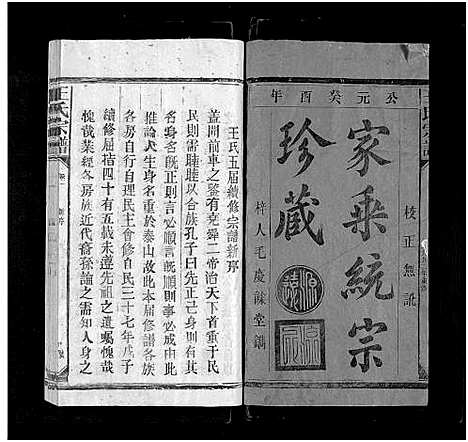 公元癸酉年
校正無訛
家乘統宗
珍藏
梓人毛慶蘇堂鐫
王氏宗譜
王氏五屆續修宗譜新序
蓋聞前車之鑒有堯舜二帝治天下首重于民
民則需睦睦以合族孔子曰先正己身則有其
名身名既正則言必順言順則事必成由
推論人生身名重於泰山故此本屆修譜各族
各房自行自理民主會修自民三十七年戊子
續修屈指四十有五載未遵先祖之遺囑愧哉
愧哉業經各房族近代裔孫論之需知人身之